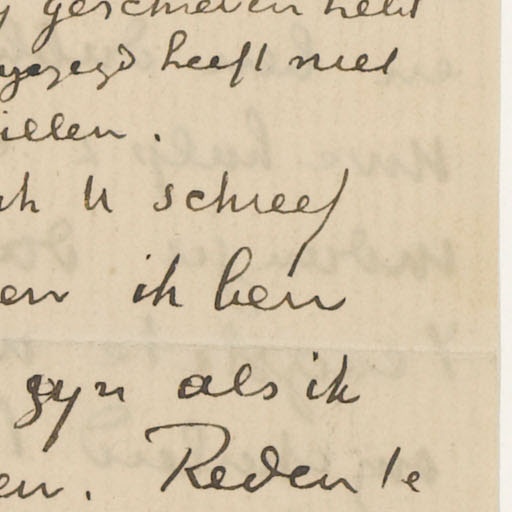 geschreven hebt
gezegd heeft niet
illen.
ik U schreef
en ik ben
zyn als ik
en. Reden te